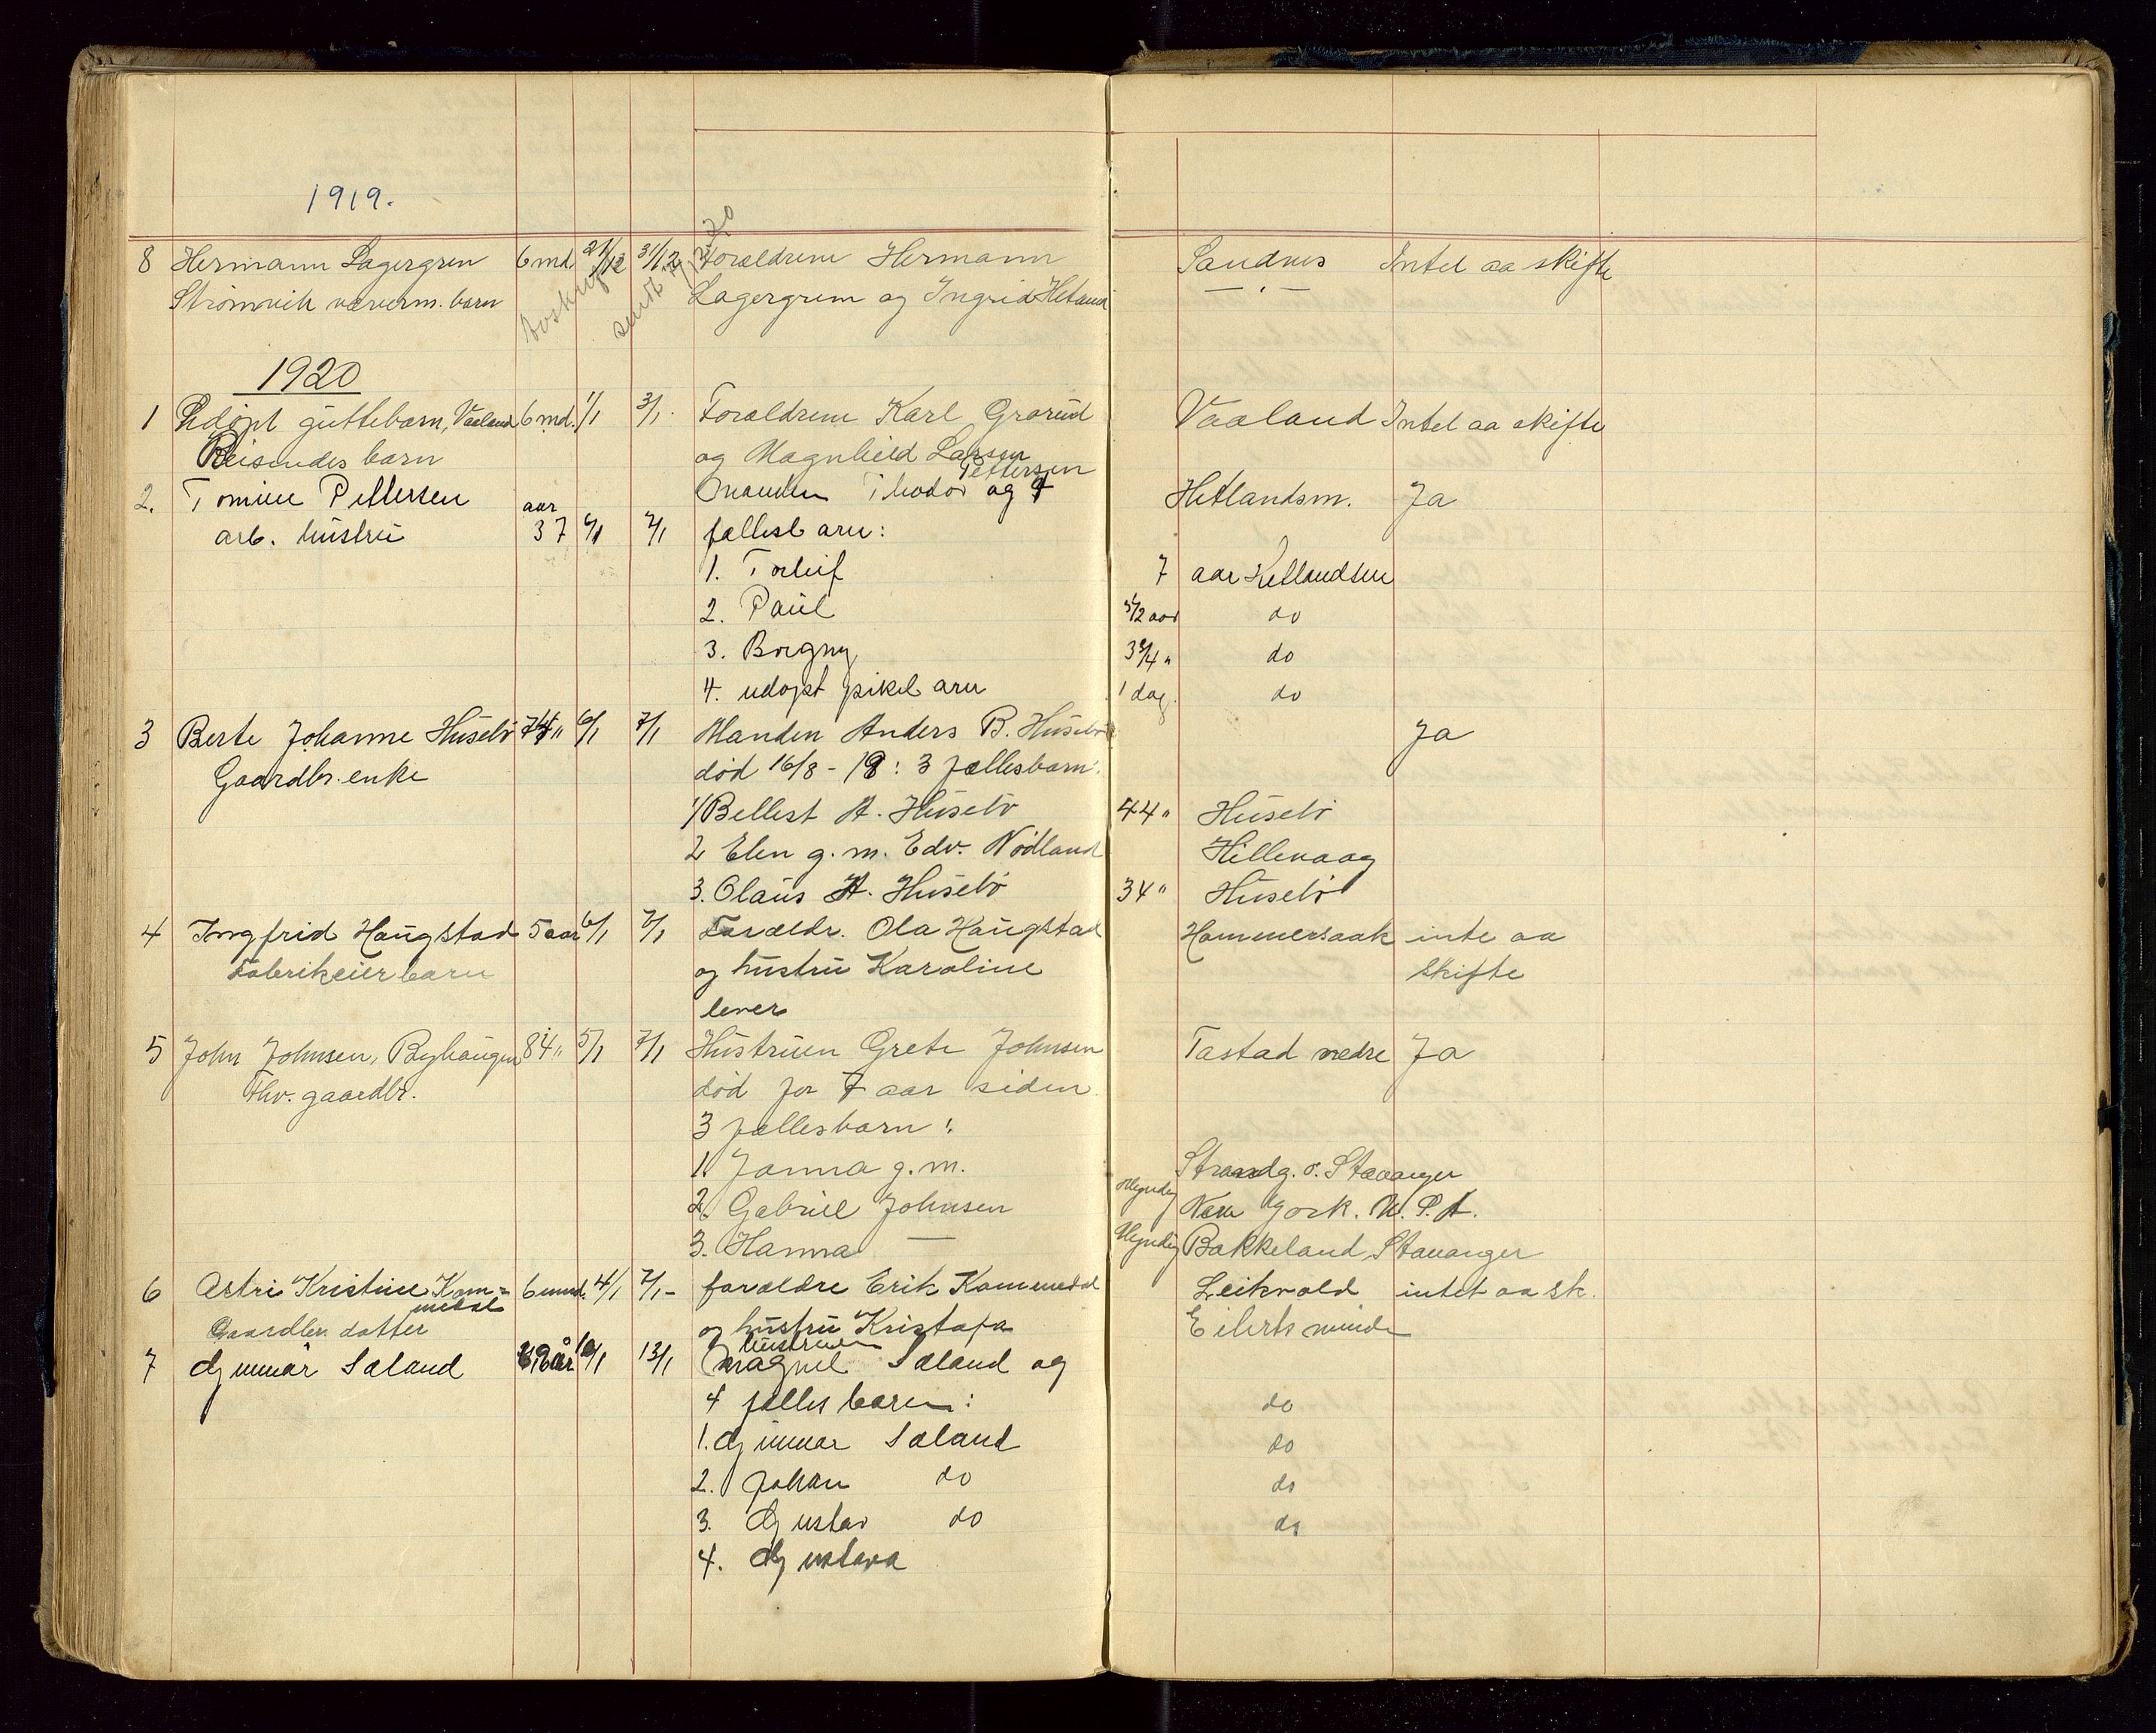 1919.
8 Hermann Lagergren 6 md. 21/12 31/12 Forældrene Hermann Sandnes Intet aa skifte
Strömvik væverm. barn Lagergren og Ingrid Hetland — . —
Avskrift sendt 20
1920
1 Udöpt guttebarn, Vaaland 6 md. 1/1 3/1. Forældrene Karl Grorud Vaaland Intet aa skifte
Reisendes barn og Magnhild Larsen
2. Tomine Pettersen Manden Theodor Pettersen og 4 Hetlandsm. Ja
arb. hustru aar 37 6/1 7/1 fællesbarn:
1. Torleif 7 aar Hetlandsm
2. Paul 5 1/2 aar do
3. Borgny 3 3/4 " do
4. udøpt pikebarn 1 dag. do
3 Berte Johanne Husebö 74 " 6/1 7/1 Manden Anders B. Husebö Ja
Gaardbr. enke död 16/8 - 18: 3 fællesbarn:
1/ Bellest A. Husebö 44 " Husebö
2 Elen g. m. Edv. Nödland Hillevaag
3. Olaus A. Husebö 34 " Husebö
4 Ingfrid Haugstad 5 aar 6/1 7/1 Forældr. Ola Haugstad Hammersaak inte aa
Fabrikeier barn og hustru Karoline skifte
lever
5 John Johnsen, Byhaugen 84 " 5/1 7/1 Hustruen Grete Johnsen Tastad nedre Ja
Fhv. gaardbr. död for 7 aar siden
3 fællesbarn:
1. Janna g. m. Strandg. Stavanger
2. Gabriel Johnsen Myndig New York. U. S. A.
3. Hanna — Myndig Bakkeland Stavanger
6 Astri Kristine Kom= 6 mnd. 4/1 7/1 - forældre Erik Kommedal Leikvold intet aa sk.
medal
Gaardbr. datter og hustru Kristofa Eilertsminde
7 Gunnar Sæland år 10/1 13/1 hustruen Magnel Sæland og
4 fælles barn: do
1. Gunnar Sæland do
2. Johan do do
3. Gustav do do
4. Gustava